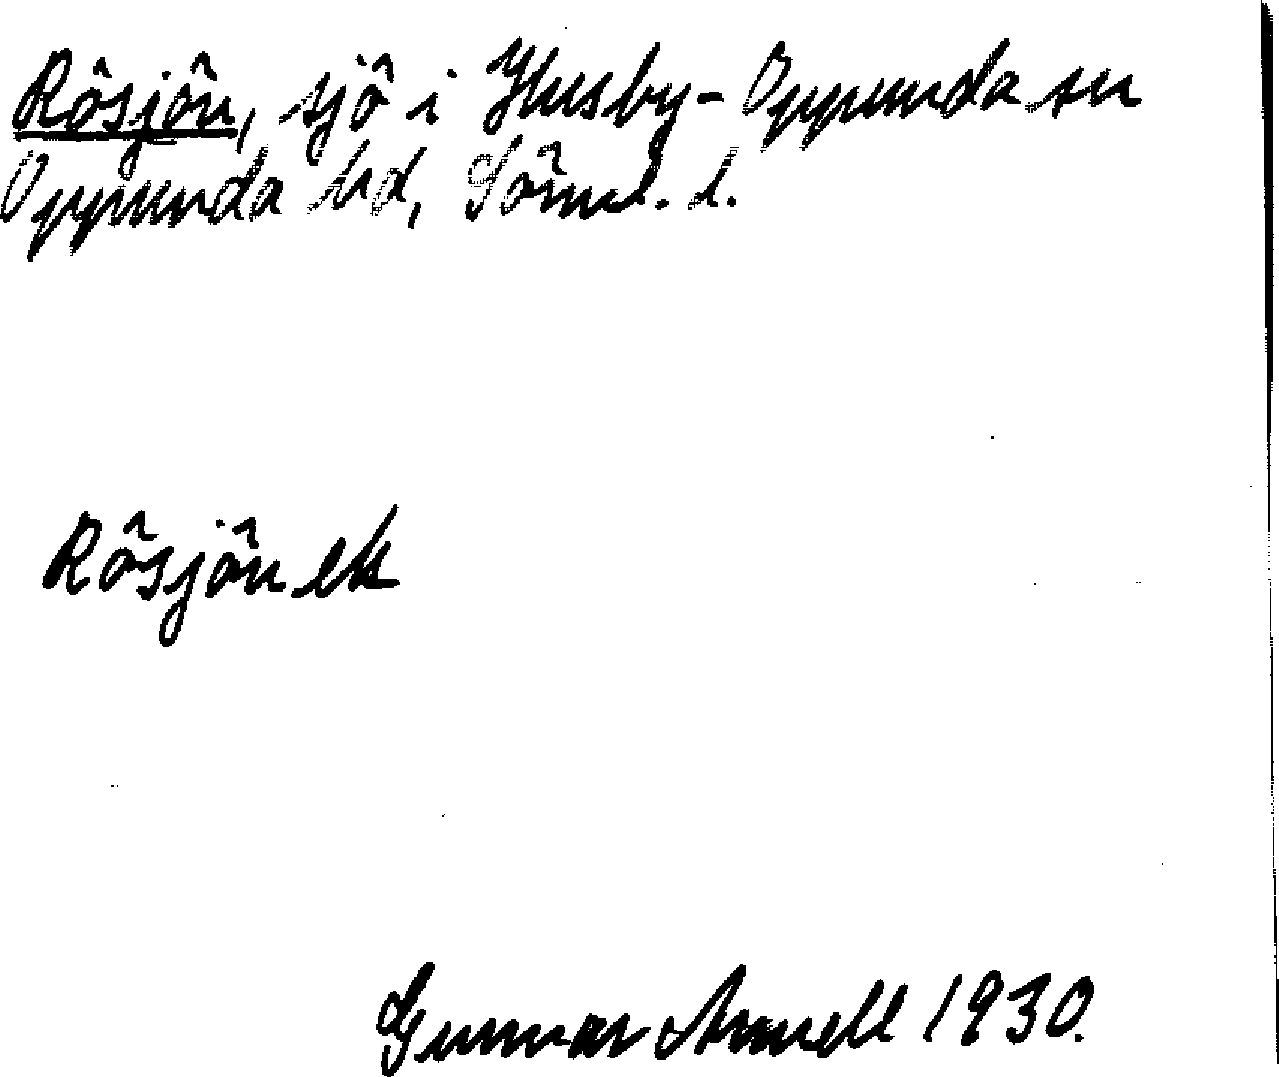 Rösjön, sjö i Husby-Oppunda sn
Oppunda hd, Söml. l.
Rösjön ek
Gunnar Arnell 1930.